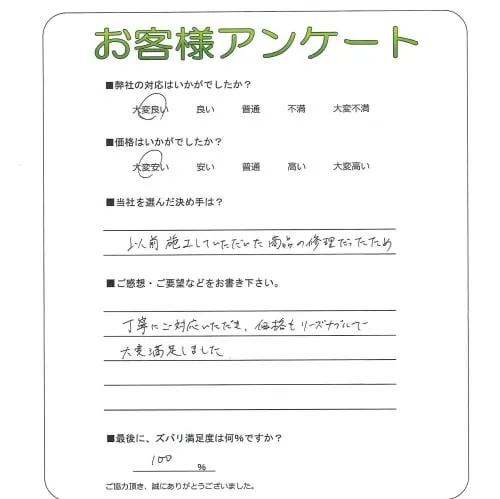 お客様アンケート
■弊社の対応はいかがでしたか？
大変良い 良い 普通 不満 大変不満
■価格はいかがでしたか？
大変安い 安い 普通 高い 大変高い
■当社を選んだ決め手は？
以前施工していただいた商品の修理だったため
■ご感想・ご要望などをお書き下さい。
丁寧にご対応いただき、価格もリーズナブルで
大変満足しました
■最後に、ズバリ満足度は何％ですか？
100 %
ご協力頂き、誠にありがとうございました。